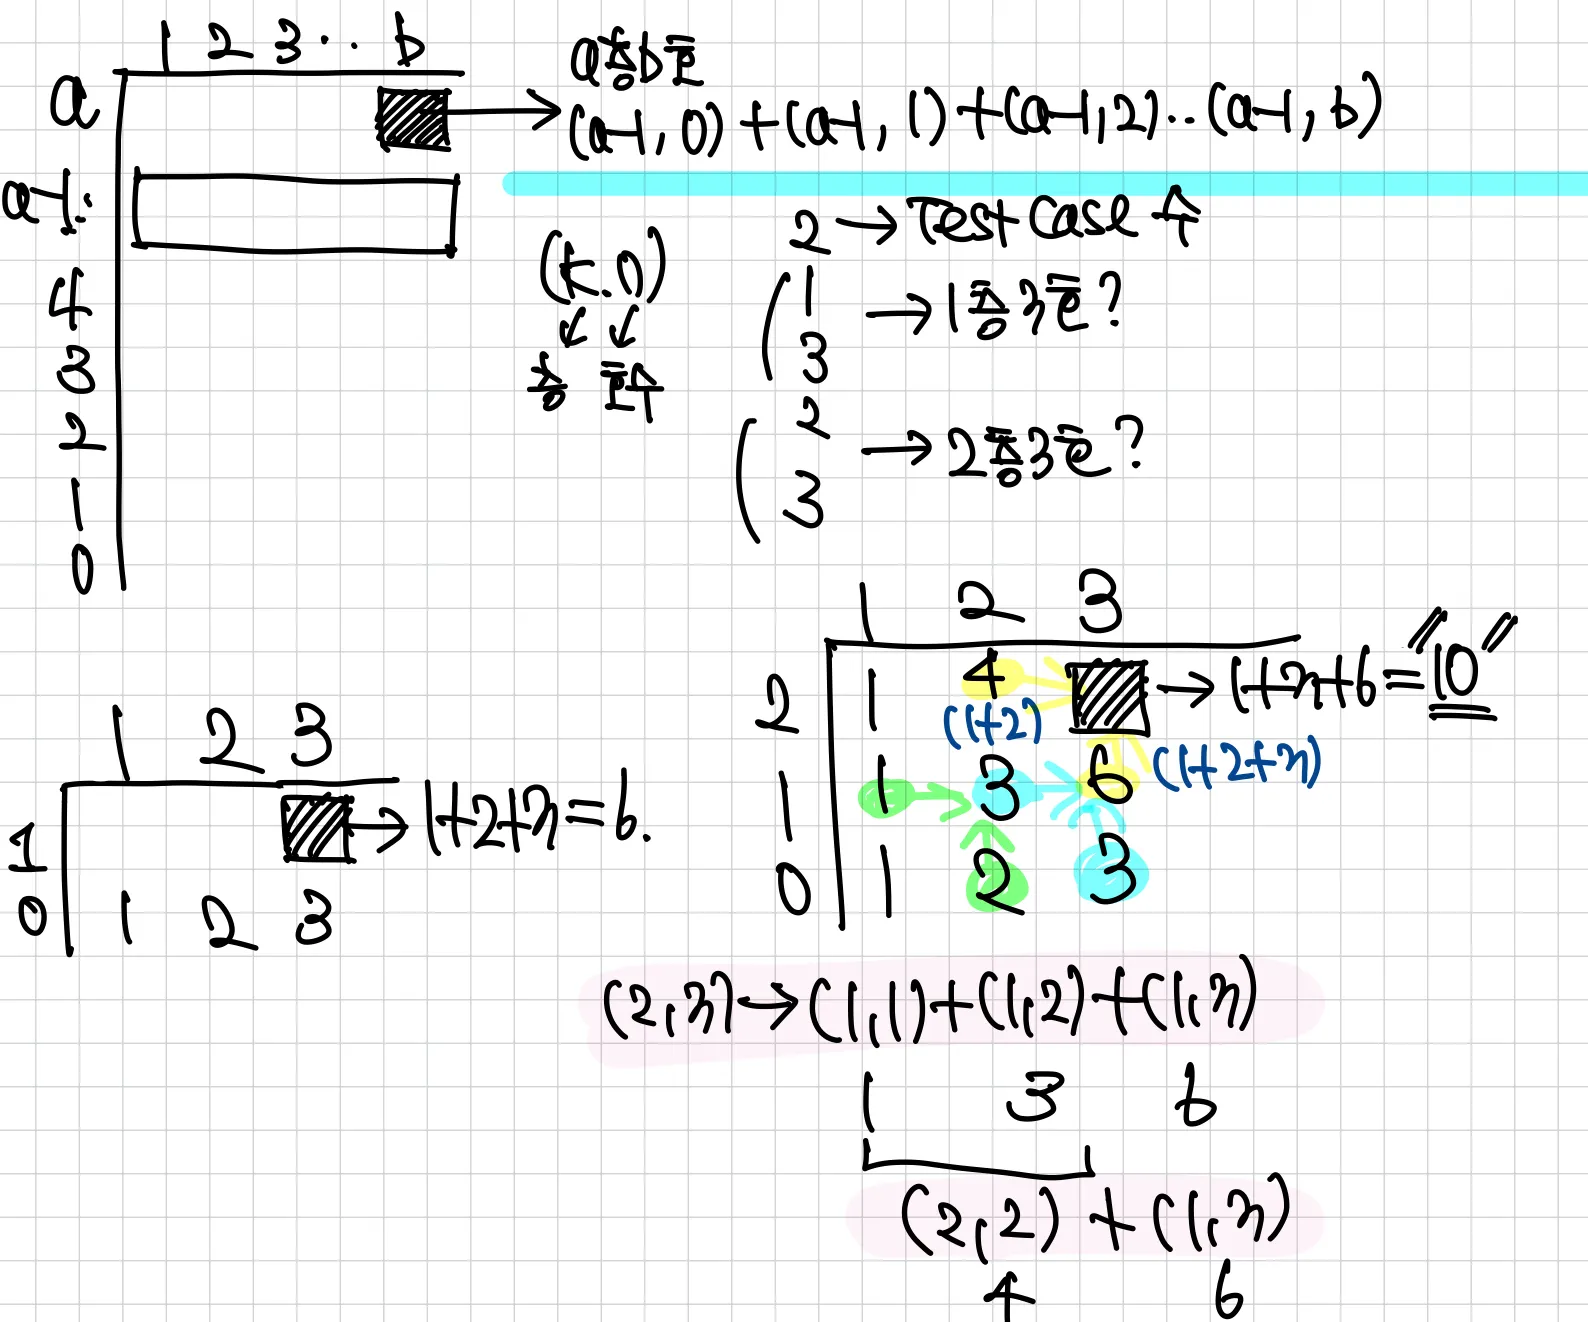 1 2 3 ·· b
a
a층 b호
(a-1, 0) + (a-1, 1) + (a-1, 2) ·· (a-1, b)
a-1:
4
3
2
1
0
(k.n)
↙ ↓
층 호수
2 → Test Case 수
1
3
→ 1층 3호?
2
3
→ 2층 3호?
1 2 3
1 → 1+2+3=6.
0 1 2 3
1 2 3
2 1 4 → 1+3+6="10"
(1+2)
1 1 3 6 (1+2+3)
0 1 2 3
(2,3) → (1,1)+(1,2)+(1,3)
1 3 6
(2,2) + (1,3)
4 6